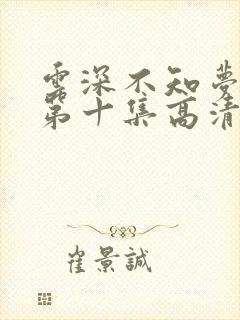 雲深不知夢
第十集高清
崔景誠